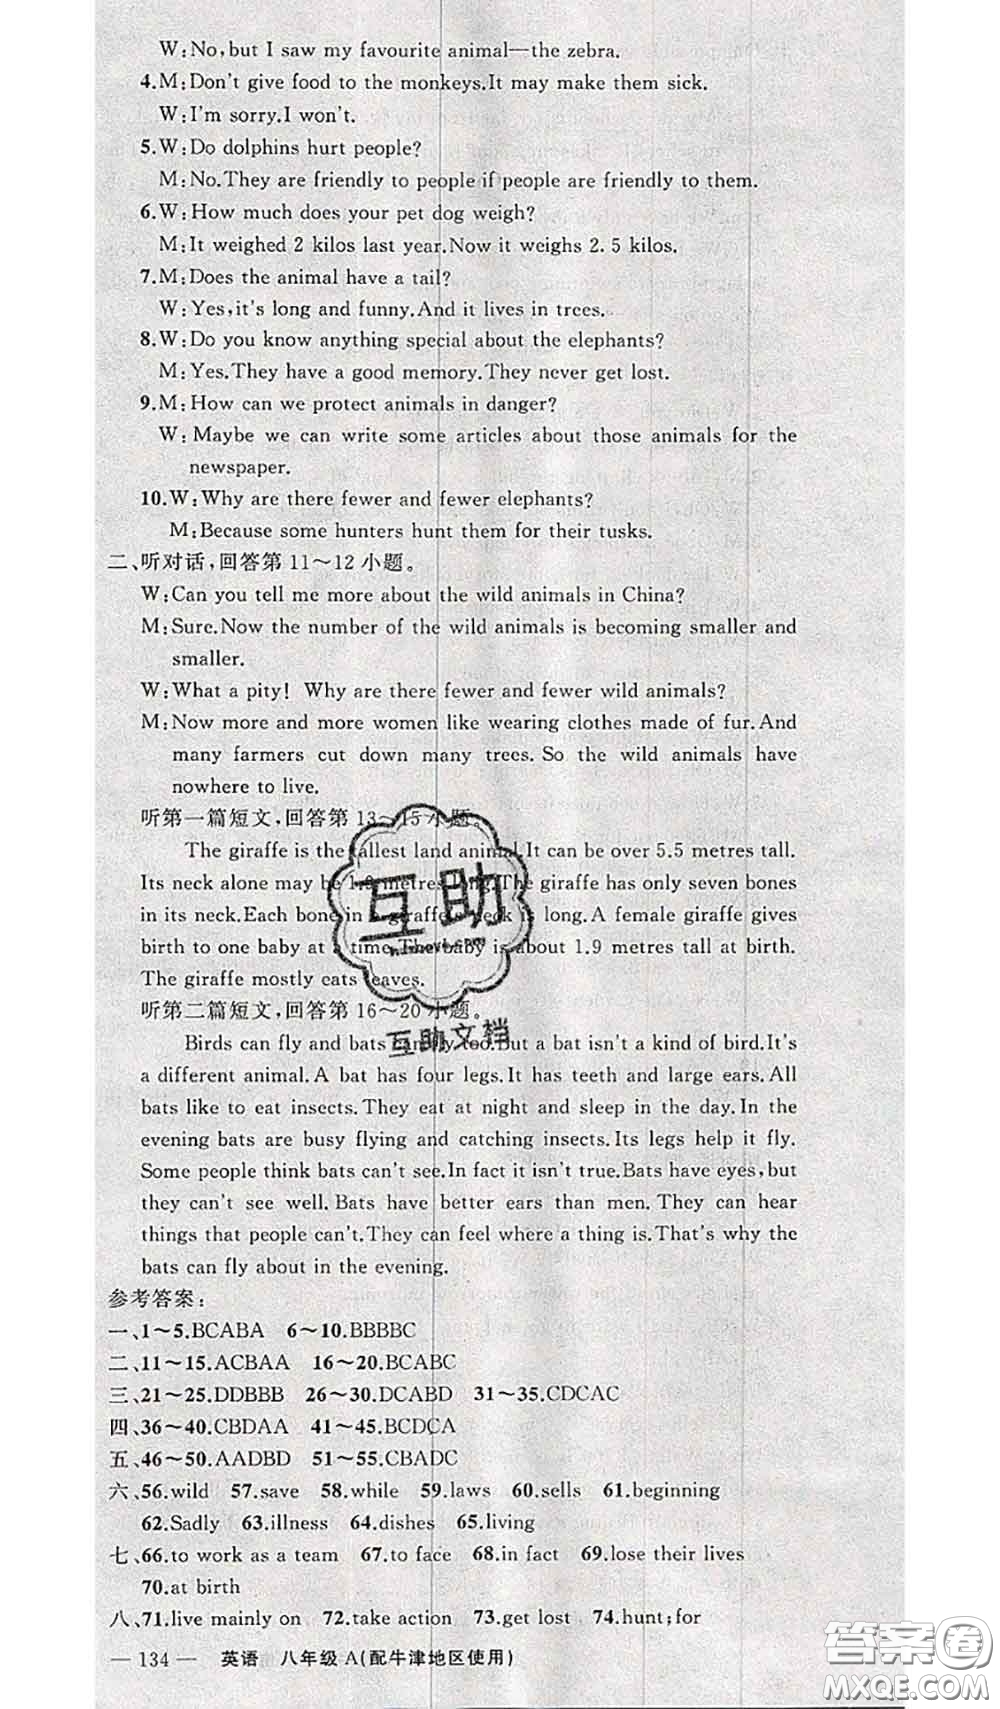 W:No,but I saw my favourite animal—the zebra.
4.M:Don't give food to the monkeys.It may make them sick.
W:I'm sorry.I won't.
5.W:Do dolphins hurt people?
M:No.They are friendly to people if people are friendly to them.
6.W:How much does your pet dog weigh?
M:It weighed 2 kilos last year.Now it weighs 2.5 kilos.
7.M:Does the animal have a tail?
W:Yes,it's long and funny.And it lives in trees.
8.W:Do you know anything special about the elephants?
M:Yes.They have a good memory.They never get lost.
9.M:How can we protect animals in danger?
W:Maybe we can write some articles about those animals for the
newspaper.
10.W:Why are there fewer and fewer elephants?
M:Because some hunters hunt them for their tusks.
二、听对话,回答第 11～12 小题。
W:Can you tell me more about the wild animals in China?
M:Sure.Now the number of the wild animals is becoming smaller and
smaller.
W:What a pity! Why are there fewer and fewer wild animals?
M:Now more and more women like wearing clothes made of fur.And
many farmers cut down many trees. So the wild animals have
nowhere to live.
听第一篇短文,回答第 13～15 小题。
The giraffe is the tallest land animal.It can be over 5.5 metres tall.
Its neck alone may be 1.8 metres long.The giraffe has only seven bones
in its neck.Each bone in a giraffe's neck is long.A female giraffe gives
birth to one baby at a time.The baby is about 1.9 metres tall at birth.
The giraffe mostly eats leaves.
听第二篇短文,回答第 16～20 小题。
Birds can fly and bats can fly too.But a bat isn't a kind of bird.It's
a different animal.A bat has four legs.It has teeth and large ears.All
bats like to eat insects.They eat at night and sleep in the day.In the
evening bats are busy flying and catching insects.Its legs help it fly.
Some people think bats can't see.In fact it isn't true.Bats have eyes,but
they can't see well.Bats have better ears than men.They can hear
things that people can't.They can feel where a thing is.That's why the
bats can fly about in the evening.
参考答案:
一、1～5.BCABA 6～10.BBBBC
二、11～15.ACBAA 16～20.BCABC
三、21～25.DDBBB 26～30.DCABD 31～35.CDCAC
四、36～40.CBDAA 41～45.BCDCA
五、46～50.AADBD 51～55.CBADC
六、56.wild 57.save 58.while 59.laws 60.sells 61.beginning
62.Sadly 63.illness 64.dishes 65.living
七、66.to work as a team 67.to face 68.in fact 69.lose their lives
70.at birth
八、71.live mainly on 72.take action 73.get lost 74.hunt;for
— 134 — 英语 八年级 A(配牛津地区使用)
互助
互助文档
答案卷
MXQE.COM